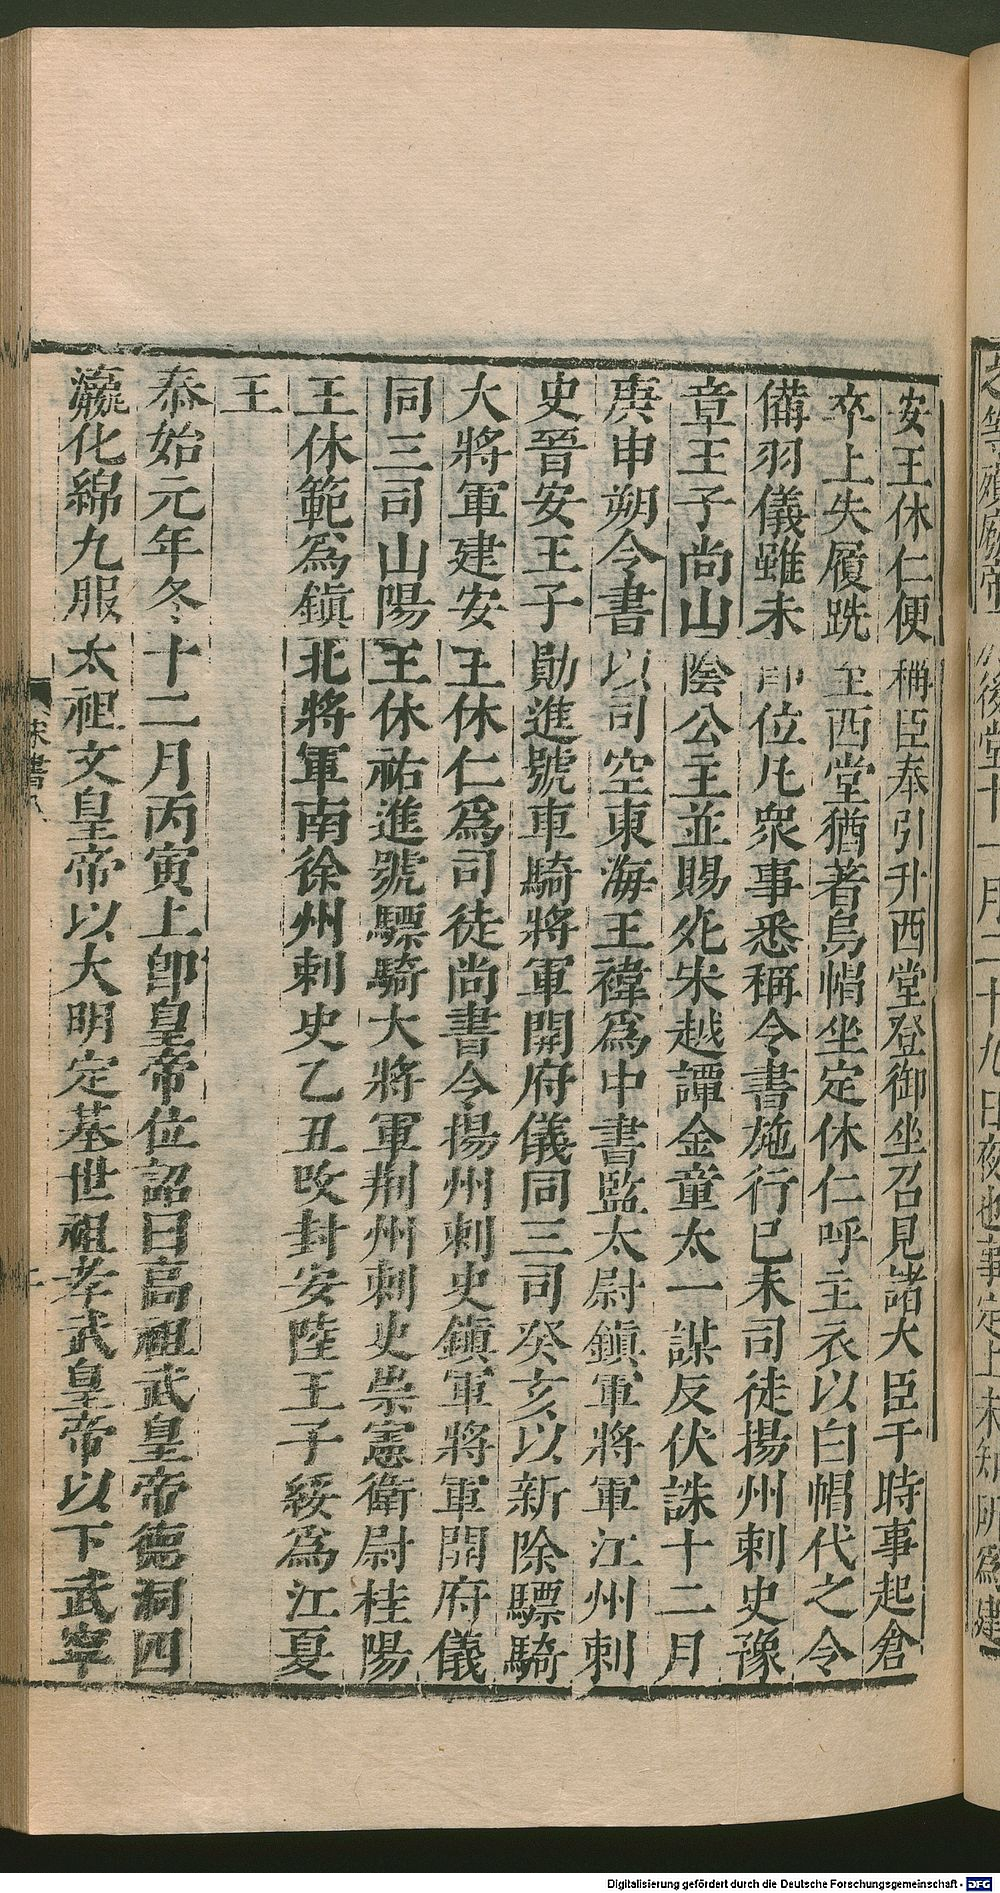 安王休仁便稱臣奉引升西堂登御坐召見諸大臣于時事起倉
卒上失履跣至西堂猶著烏帽坐定休仁呼主衣以白帽代之令
備羽儀雖未卽位凡衆事悉稱令書施行己未司徒揚州刺史豫
章王子尚山陰公主並賜死宋越譚金童太一謀反伏誅十二月
庚申朔令書以司空東海王禕爲中書監太尉鎭軍將軍江州刺
史晉安王子勛進號車騎將軍開府儀同三司癸亥以新除驃騎
大將軍建安王休仁爲司徒尚書令揚州刺史鎭軍將軍開府儀
同三司山陽王休祐進號驃騎大將軍荆州刺史崇憲衛尉桂陽
王休範爲鎭北將軍南徐州刺史乙丑攺封安陸王子綏爲江夏
王
泰始元年冬十二月丙寅上卽皇帝位詔曰高祖武皇帝德洞四
瀛化綿九服太祖文皇帝以大明定基世祖孝武皇帝以下武寧
宋書八
Digitalisierung gefördert durch die Deutsche Forschungsgemeinschaft - DFG